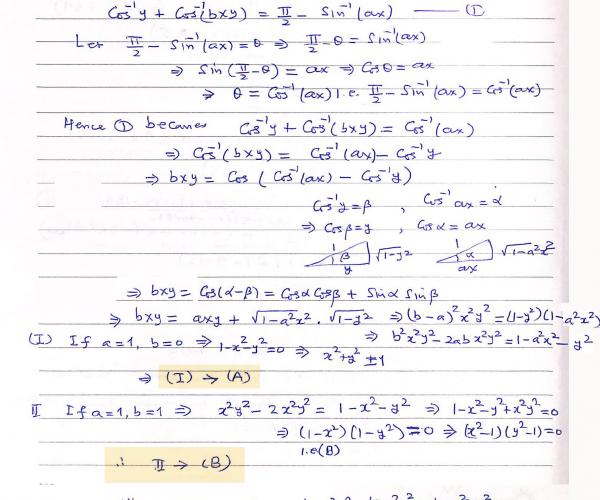 Cos⁻¹y + Cos⁻¹(bxy) = π/2 - Sin⁻¹(ax) —— ①
Let π/2 - Sin⁻¹(ax) = θ ⇒ π/2 - θ = Sin⁻¹(ax)
⇒ Sin(π/2 - θ) = ax ⇒ Cosθ = ax
⇒ θ = Cos⁻¹(ax) i.e. π/2 - Sin⁻¹(ax) = Cos⁻¹(ax)
Hence ① becomes Cos⁻¹y + Cos⁻¹(bxy) = Cos⁻¹(ax)
⇒ Cos⁻¹(bxy) = Cos⁻¹(ax) - Cos⁻¹y
⇒ bxy = Cos (Cos⁻¹(ax) - Cos⁻¹y)
Cos⁻¹y = β , Cos⁻¹ax = α
⇒ Cosβ = y , Cosα = ax
1 β y √1-y² 1 α ax √1-a²x²
⇒ bxy = Cos(α-β) = Cosα Cosβ + Sinα Sinβ
⇒ bxy = axy + √1-a²x² . √1-y² ⇒ (b-a)²x²y² = (1-y²)(1-a²x²)
⇒ b²x²y² - 2abx²y² = 1-a²x²-y²
(I) If a=1, b=0 ⇒ 1-x²-y²=0 ⇒ x²+y² = 1
⇒ (I) → (A)
II If a=1, b=1 ⇒ x²y² - 2x²y² = 1-x²-y² ⇒ 1-x²-y²+x²y²=0
⇒ (1-x²)(1-y²) = 0 ⇒ (x²-1)(y²-1)=0
i.e (B)
∴ II → (B)